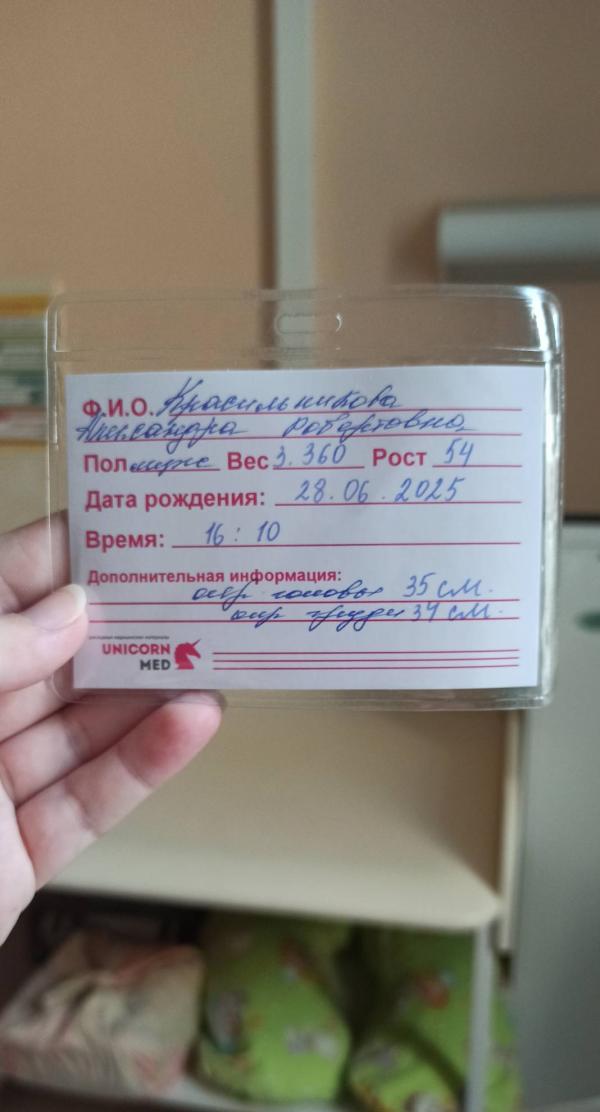 Ф.И.О. Красильникова
Александра Робертовна
Пол муж Вес 3.360 Рост 54
Дата рождения: 28.06.2025
Время: 16:10
Дополнительная информация:
окр головы 35 см.
окр груди 34 см.
UNICORN
MED